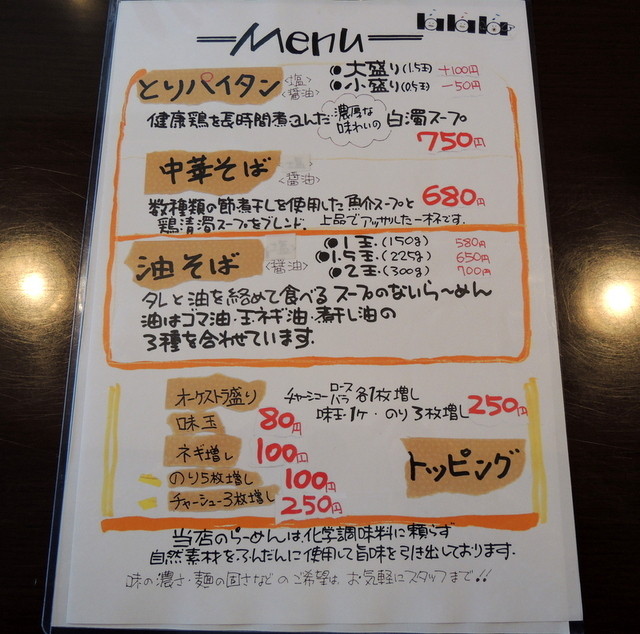 lalala
Menu
とりパイタン <塩> <醤油>
●大盛り(1.5玉) +100円
●小盛り(0.5玉) -50円
健康鶏を長時間煮込んだ 濃厚な味わいの 白濁スープ
750円
中華そば <塩> <醤油>
数種類の節煮干しを使用した魚介スープと
鶏清濁スープをブレンド. 上品でアッサリした一杯です.
680円
油そば <醤油>
●1玉・(150g) 580円
●1.5玉・(225g) 650円
●2玉・(300g) 700円
タレと油を絡めて食べるスープのないら〜めん
油はゴマ油・玉ネギ油・煮干し油の
3種を合わせています.
オーケストラ盛り チャーシュー ロース バラ 各1枚増し
味玉・1ケ・のり3枚増し 250円
味玉 80円
ネギ増し 100円
のり5枚増し 100円
チャーシュー3枚増し 250円
トッピング
当店のらーめんは化学調味料に頼らず
自然素材をふんだんに使用して旨味を引き出しております.
味の濃さ・麺の固さなどのご希望は、お気軽にスタッフまで!!